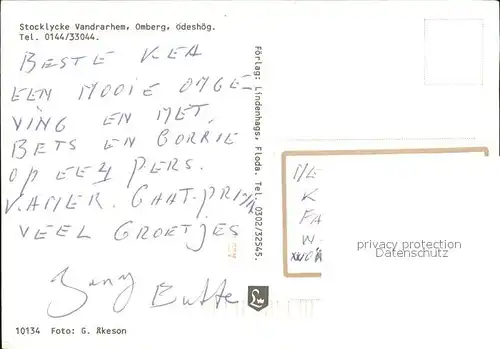 Stocklycke Vandrarhem, Omberg, ödeshög.
Tel. 0144/33044.
BESTE KEA
EEN MOOIE OMGE-
VING EN MET.
BETS EN CORRIE
OP EEN 4 PERS.
KAMER. GAAT PRIMA
VEEL GROETJES
10134 Foto: G. Åkeson
Förlag: Lindenhags, Floda. Tel. 0302/32545.
ME
K
FA
W-
privacy protection
Datenschutz